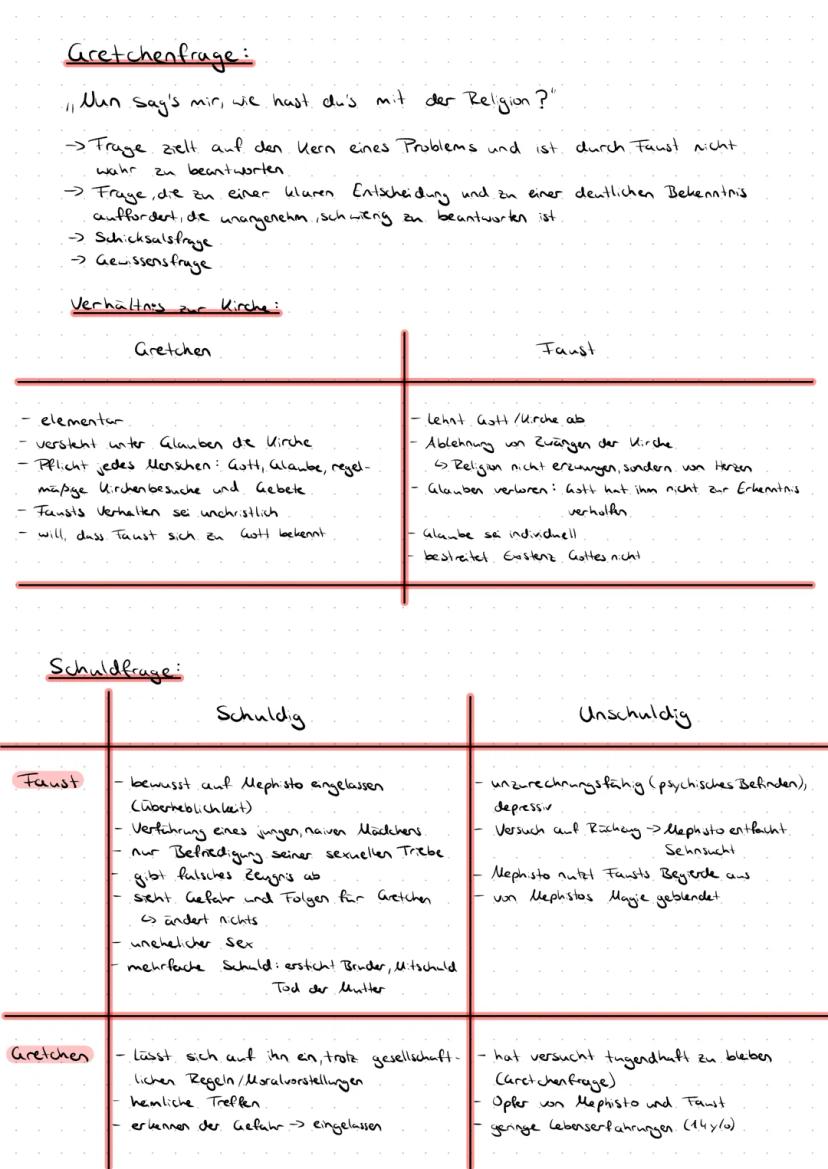 Gretchenfrage:
„Nun sag's mir, wie hast du's mit der Religion?"
→ Frage zielt auf den Kern eines Problems und ist durch Faust nicht
wahr zu beantworten
→ Frage, die zu einer klaren Entscheidung und zu einer deutlichen Bekenntnis
auffordert, die unangenehm, schwierig zu beantworten ist
→ Schicksalsfrage
→ Gewissensfrage
Verhältnis zur Kirche:
Gretchen
- elementar
- versteht unter Glauben die Kirche
- Pflicht jedes Menschen: Gott, Glaube, regel-
mäßge Kirchenbesuche und Gebete
- Fausts Verhalten sei unchristlich
- will, dass Faust sich zu Gott bekennt
Faust
- lehnt Gott/Kirche ab
- Ablehnung von Zwängen der Kirche
↳ Religion nicht erzwungen, sondern von Herzen
- Glauben verloren: Gott hat ihm nicht zur Erkenntnis
verholfen
- Glaube sei individuell
- bestreitet Existenz Gottes nicht
Schuldfrage:
Schuldig
Unschuldig
Faust
- bewusst auf Mephisto eingelassen
(Überheblichkeit)
- Verführung eines jungen, naiven Mädchens
- nur Befriedigung seiner sexuellen Triebe
- gibt falsches Zeugnis ab
- sieht Gefahr und Folgen für Gretchen
↳ ändert nichts
- unehelicher Sex
- mehrfache Schuld: ersticht Bruder, Mitschuld
Tod der Mutter
- unzurechnungsfähig (psychisches Befinden),
depressiv
- Versuch auf Rückzug → Mephisto entfacht
Sehnsucht
- Mephisto nutzt Fausts Begierde aus
- von Mephistos Magie geblendet
Gretchen
- lässt sich auf ihn ein, trotz gesellschaft-
lichen Regeln/Moralvorstellungen
- heimliche Treffen
- erkennen der Gefahr → eingelassen
- hat versucht tugendhaft zu bleiben
(Gretchenfrage)
- Opfer von Mephisto und Faust
- geringe Lebenserfahrungen (14 y/o)